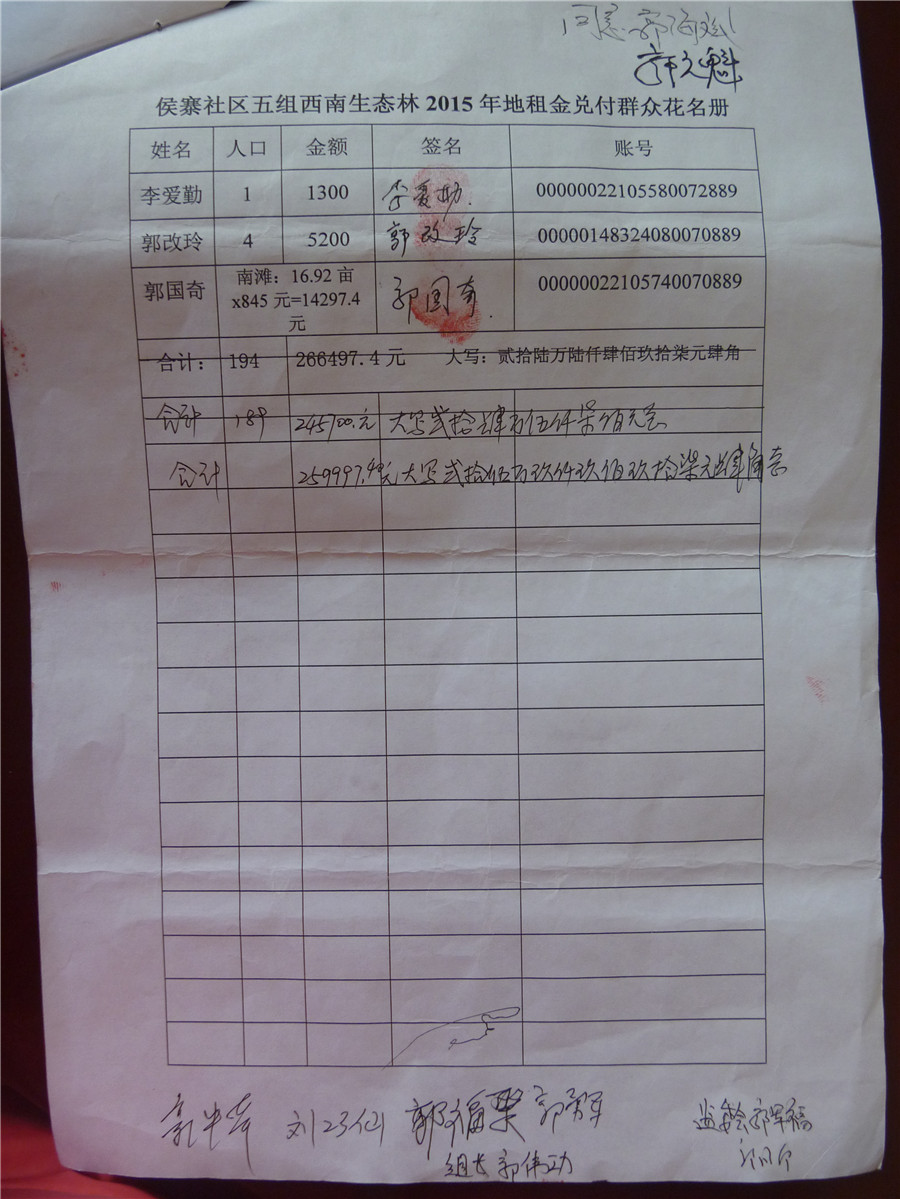 同意 郭海斌
郭文魁
侯寨社区五组西南生态林 2015 年地租金兑付群众花名册
姓名 人口 金额 签名 账号
李爱勤 1 1300 李爱勤 00000022105580072889
郭改玲 4 5200 郭改玲 00000148324080070889
郭国奇 南滩：16.92 亩 郭国奇 00000022105740070889
x845 元=14297.4
元
合计： 194 266497.4 元 大写：贰拾陆万陆仟肆佰玖拾柒元肆角
合计 189 245700.元 大写贰拾肆万伍仟柒佰元
合计 259997.40元 大写贰拾伍万玖仟玖佰玖拾柒元肆角
郭福聚
组长郭伟功